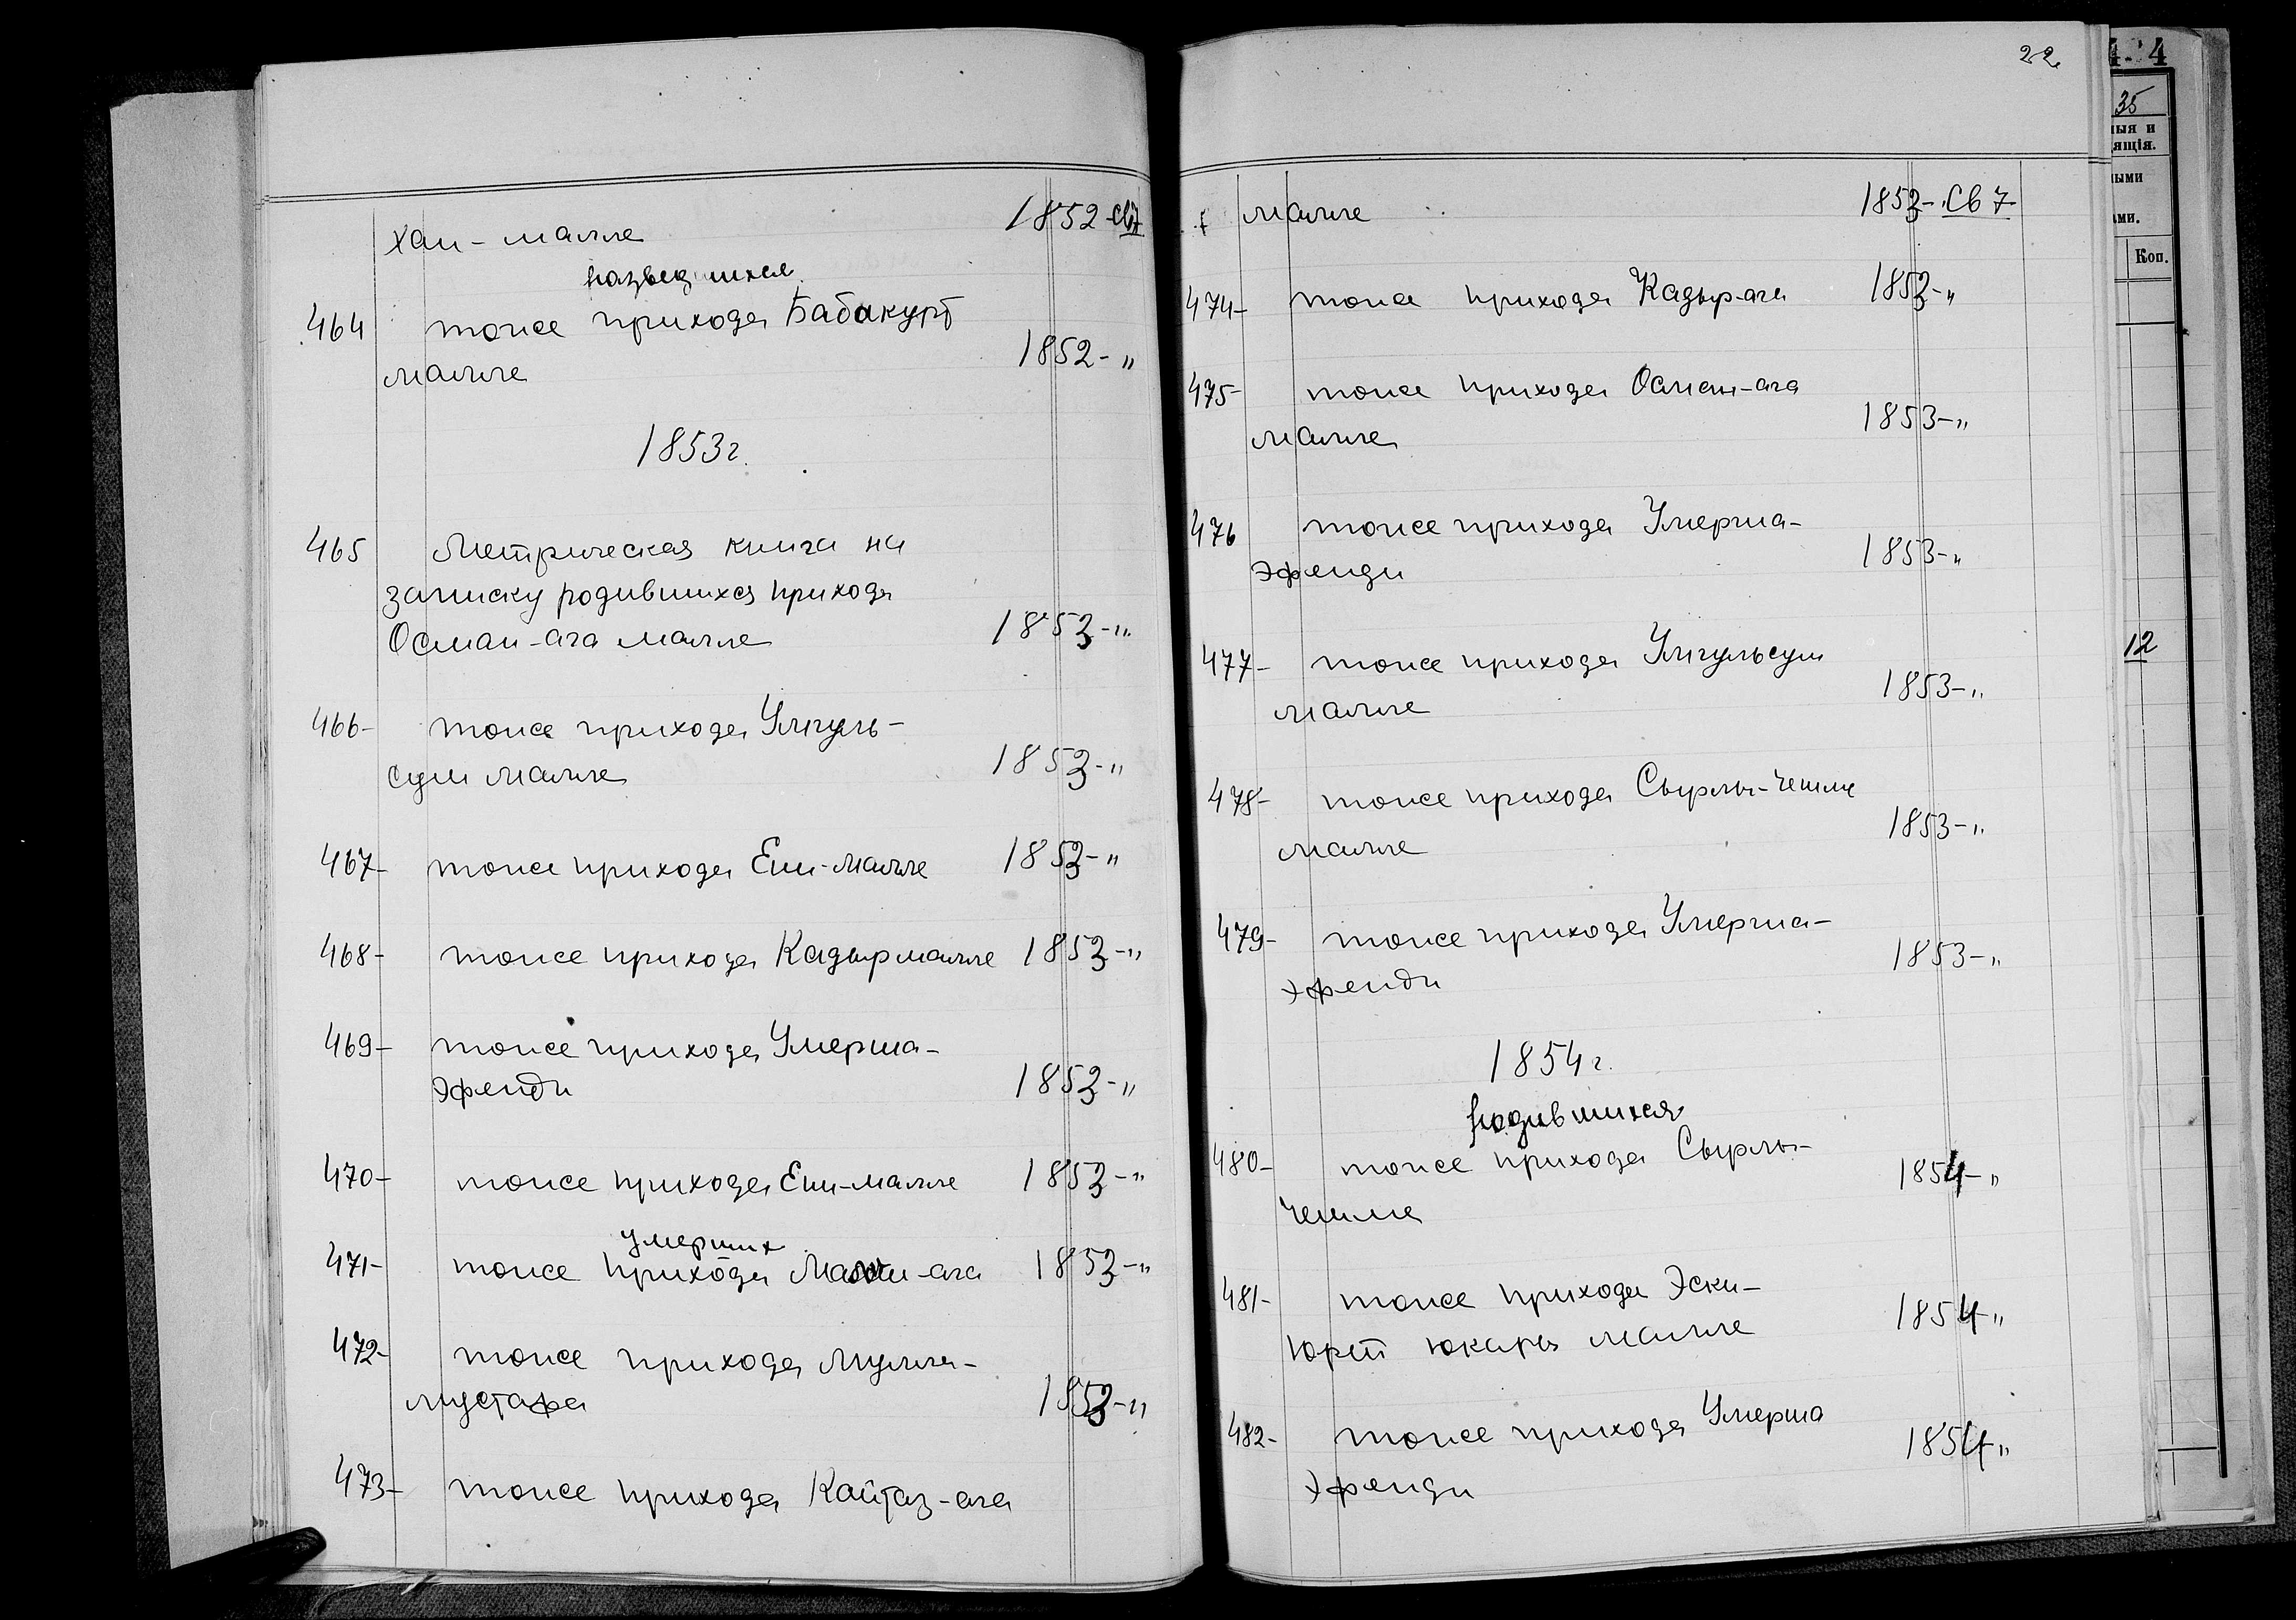 хаи-малле 1852-св7
разведшихся
464 тоже прихода Бабакурт
малле 1852-"
1853г.
465 Метрическая книга на
записку родившихся прихода
Осман-ага малле 1853-"
466- тоже прихода Умгуль-
сум малле 1853-"
467- тоже прихода Ени-малле 1853-"
468- тоже прихода Кадырмалле 1853-"
469- тоже прихода Умерша-
эфенди 1853-"
470- тоже прихода Ени-малле 1853-"
умерших
471- тоже прихода -ага 1853-"
472- тоже прихода мулла-
мустафа 1853-"
473- тоже прихода Кайтаз-ага
22
малле 1853-Св 7
474- тоже прихода Кадыр-ага 1853-"
475- тоже прихода Осман-ага
малле 1853-"
476 тоже прихода Умерша-
эфенди 1853-"
477- тоже прихода Умгульсум
малле 1853-"
478- тоже прихода Сырлы-Чешме
малле 1853-"
479- тоже прихода Умерша-
эфенди 1853-"
1854г.
родившихся
480- тоже прихода Сырлы-
Чешме 1854-"
481- тоже прихода Эски-
Юрт юкары малле 1854-"
482- тоже прихода Умерша
Эфенди 1854-"
4
35
ныя и
ящія.
ными
ами.
Коп.
12